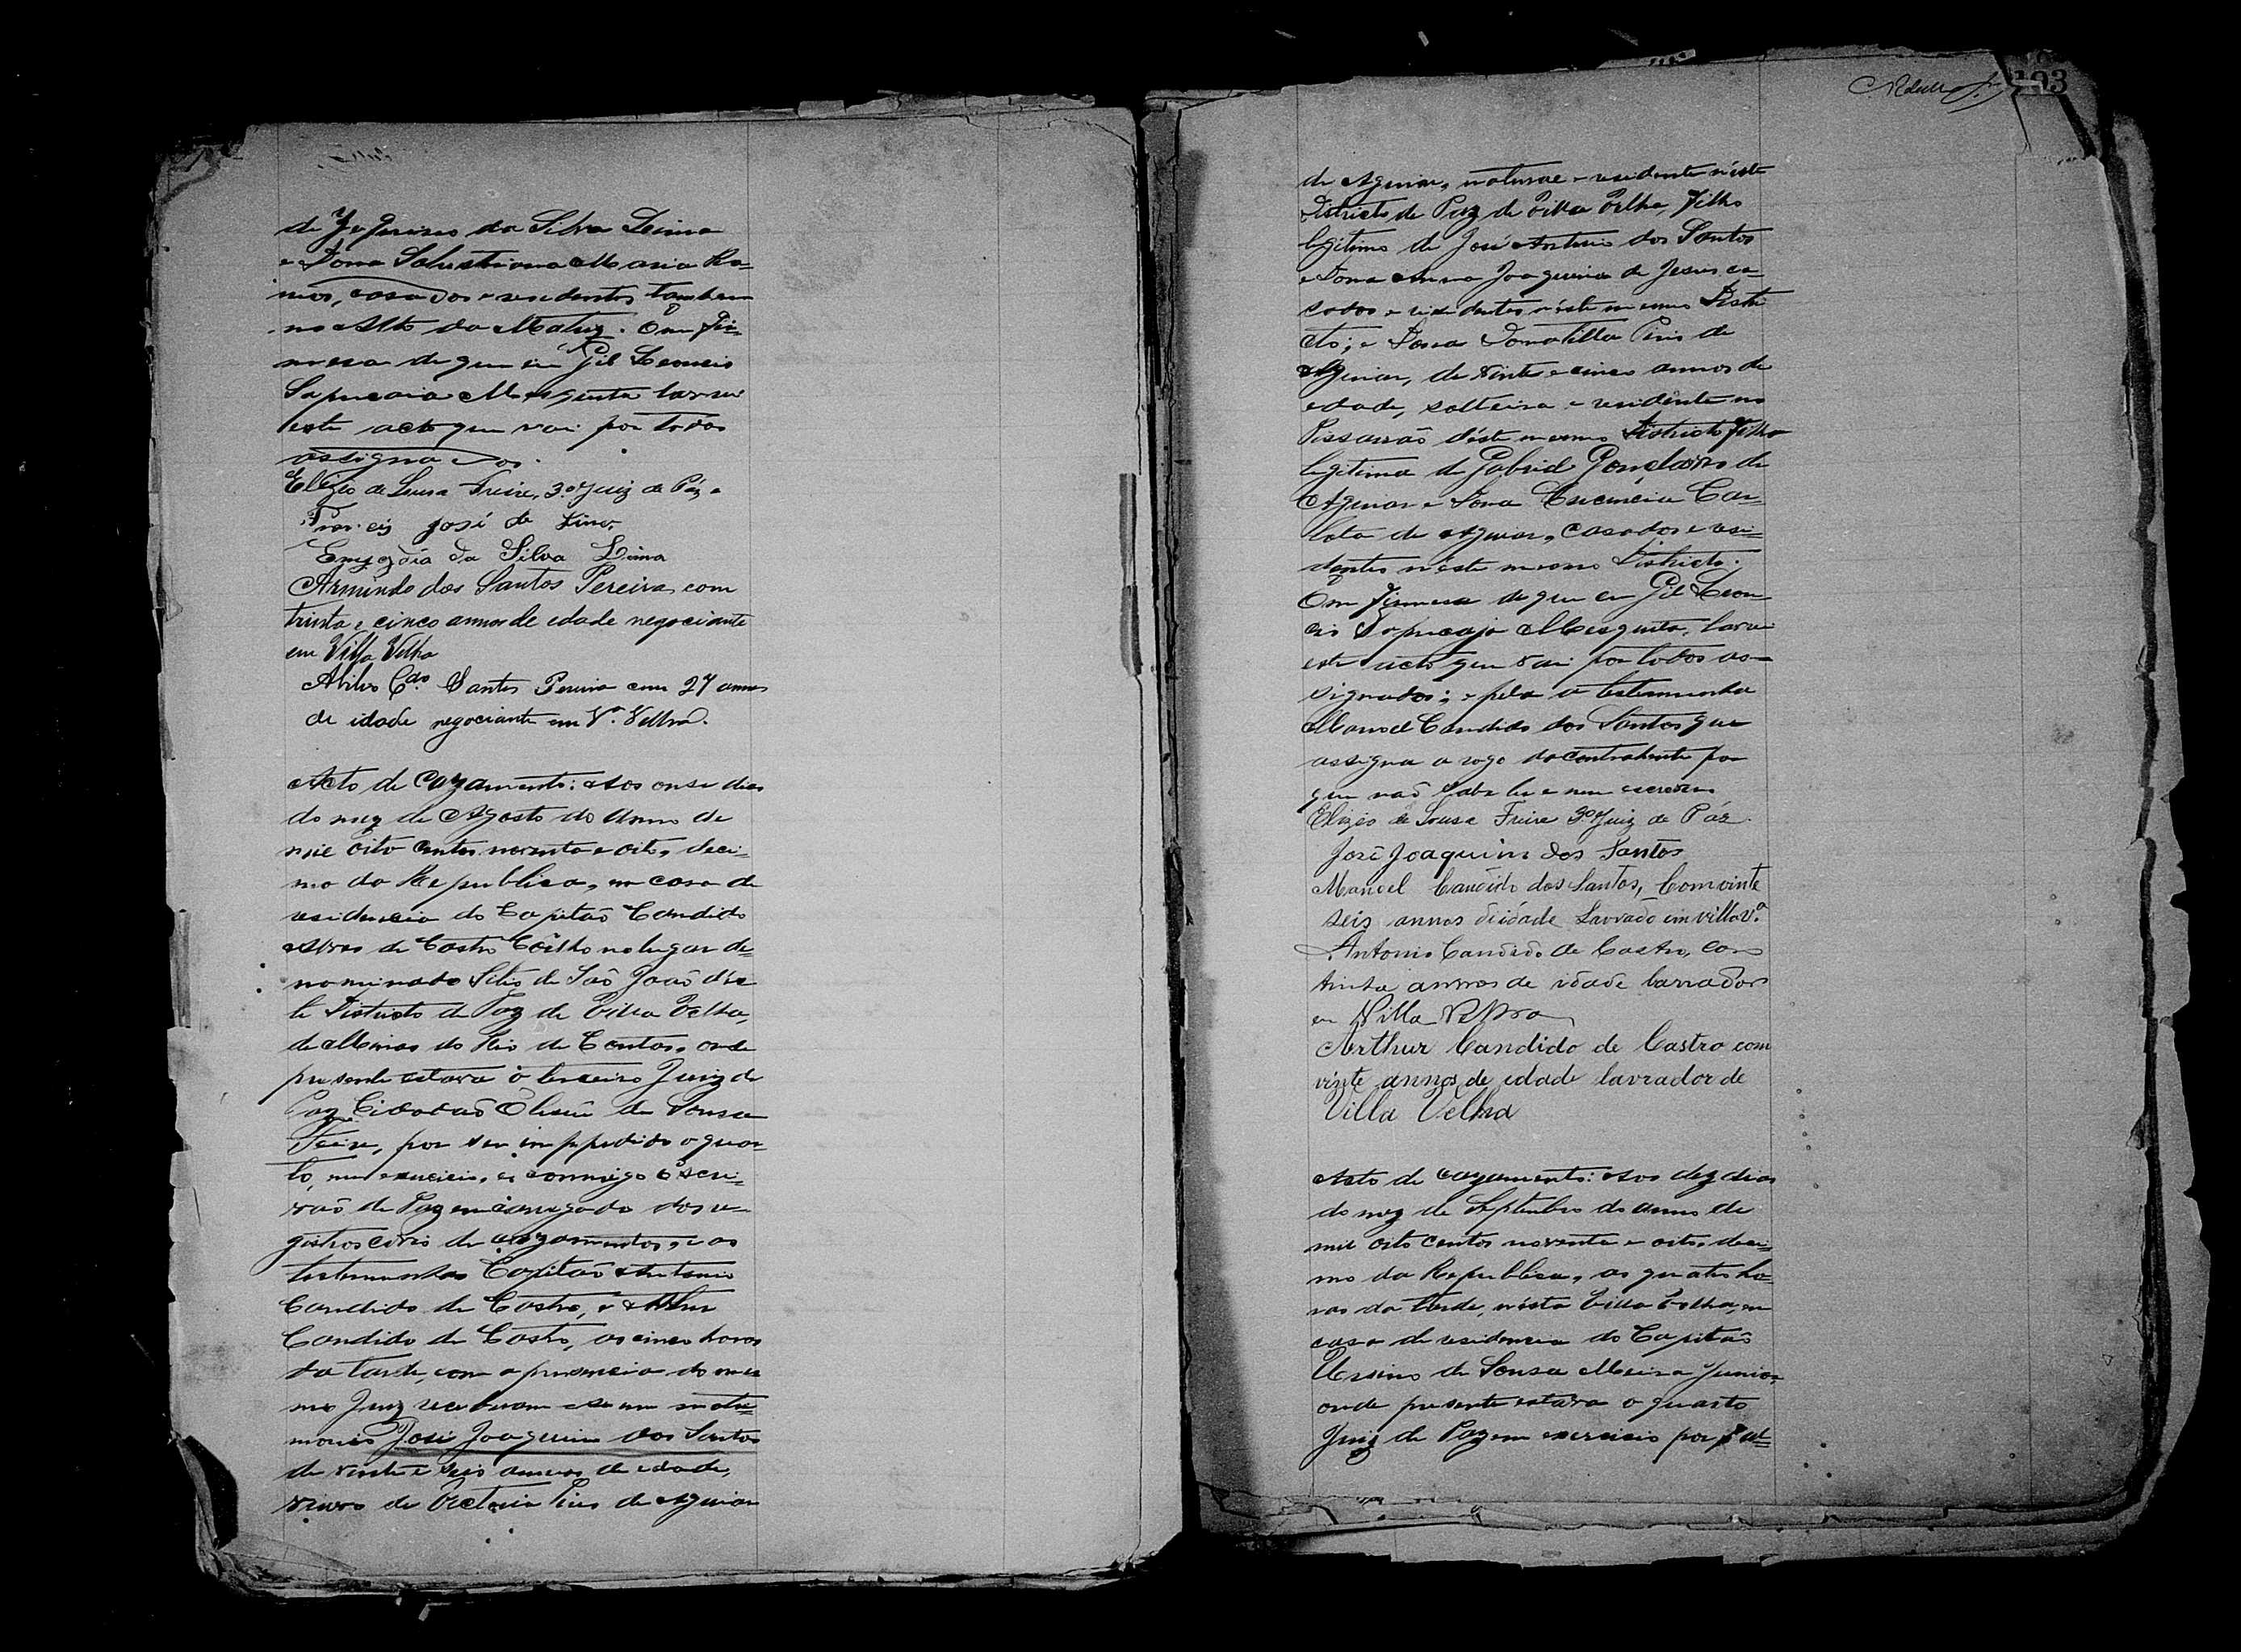 da Silva Lima
e Dona Salustiana Maria Ra=
mos, casados e residentes tambem
no Alto da Matriz. Em fir=
mesa de que eu Gil Leoncio
Sapucaia Mesquita lavrei
este acto que vai por todos
assignados.
Elizio de Sousa Freire, 3º Juiz de Páz
José de Lima
Emygdia da Silva Lima
Armindo dos Santos Pereira, com
trinta e cinco annos de edade negociante
em Villa Velha
Abilio Cdo. Santos Pereira com 27 annos
de idade negociante em Vª. Velha.
Acto de Cazamento: Aos onse dias
do mez de Agosto do Anno de
mil oito centos noventa e oito, deci=
mo da Republica, na casa de
residencia do Capitão Candido
Alves de Castro Coêlho no lugar de=
nominado Sitio de São João dés=
te Districto de Paz de Villa Velha,
de Minas do Rio de Contas, onde
presente estava o terceiro Juiz de
Paz Cidadão Eliseu de Sousa
Freire, por ser impedido o quar=
to, em exercicio, e commigo Escri=
vão de Paz encarregado dos re=
gistros civis de cazamentos, e as
testemunhas Capitão Antonio
Candido de Castro, e Arthur
Candido de Castro, as cinco horas
da tarde, com a presencia do mes=
mo Juiz receberam-se em matri=
monio José Joaquim dos Santos
de vinte e seis annos de edade,
viuvo de Victoria Pires de Aguiar
103
de Aguiar, natural e residente néste
Districto de Paz de Villa Velha, filho
legitimo de José Antonio dos Santos
e Dona Anna Joaquina de Jesus ca=
sados e residentes néste mesmo Distri=
cto; e Dona Donatilla Pires de
Aguiar, de vinte e cinco annos de
edade, solteira e residente no
Pissarrão déste mesmo Districto filha
legitima de Gabriel Gonçalves de
Aguiar e Dona Car=
lota de Aguiar, casados e resi=
dentes néste mesmo Districto.
Em firmesa de que eu Gil Leon=
cio Sapucaja Mesquita, lavrei
este acto que vai por todos as=
signados; e pela a testemunha
Manoel Candido dos Santos que
assigna a rogo da contrahente por
que não sabe ler e nem escrever
Elizio de Sousa Freire 3º Juiz de Páz.
José Joaquim dos Santos
Manoel Candido dos Santos, Com vinte
seis annos de idade Lavrado em villa Vª
Antonio Candido de Castro, com
trinta annos de idade lavrador
em Villa Velha
Arthur Candido de Castro com
vinte annos de edade lavrador de
Villa Velha
Acto de cazamento: Aos dez dias
do mez de Septembro do anno de
mil oito centos noventa e oito, deci=
mo da Republica, as quatro ho=
ras da tarde, nésta Villa Velha, em
casa de residencia do Capitão
Ursino de Sousa Meira Junior,
onde presente estava o quarto
Juiz de Paz em exercicio por fal=